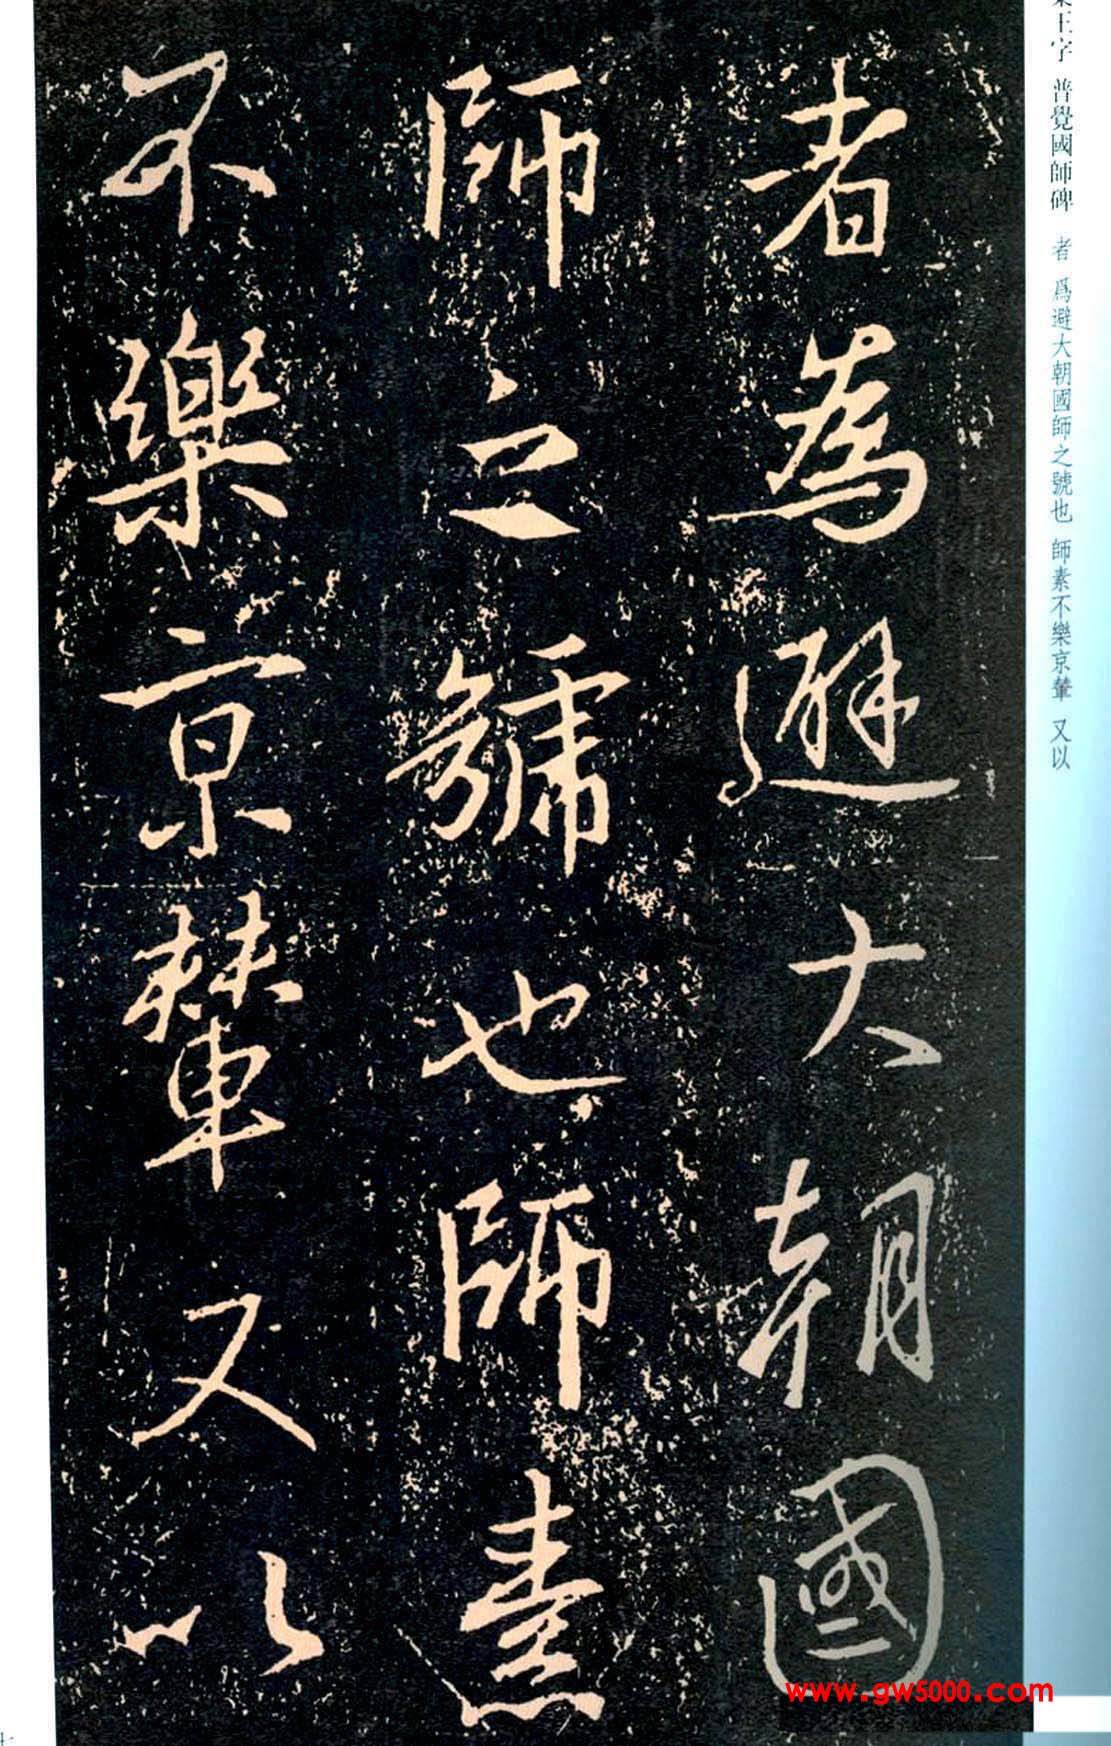 王字 普覺國師碑 者 爲避大朝國師之號也 師素不樂京輦 又以
者為避大朝國
師之號也師素
不樂京輦又以
www.gw5000.com